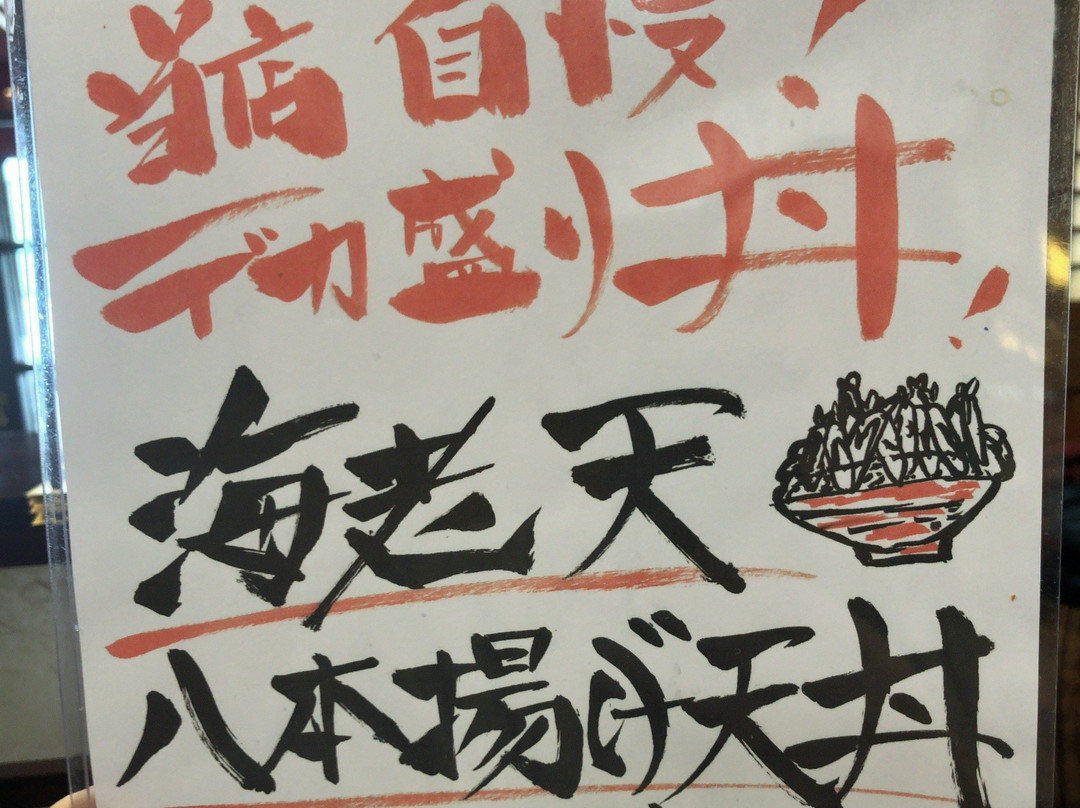 当店自慢!
デカ盛り丼!
海老天
八本揚げ天丼